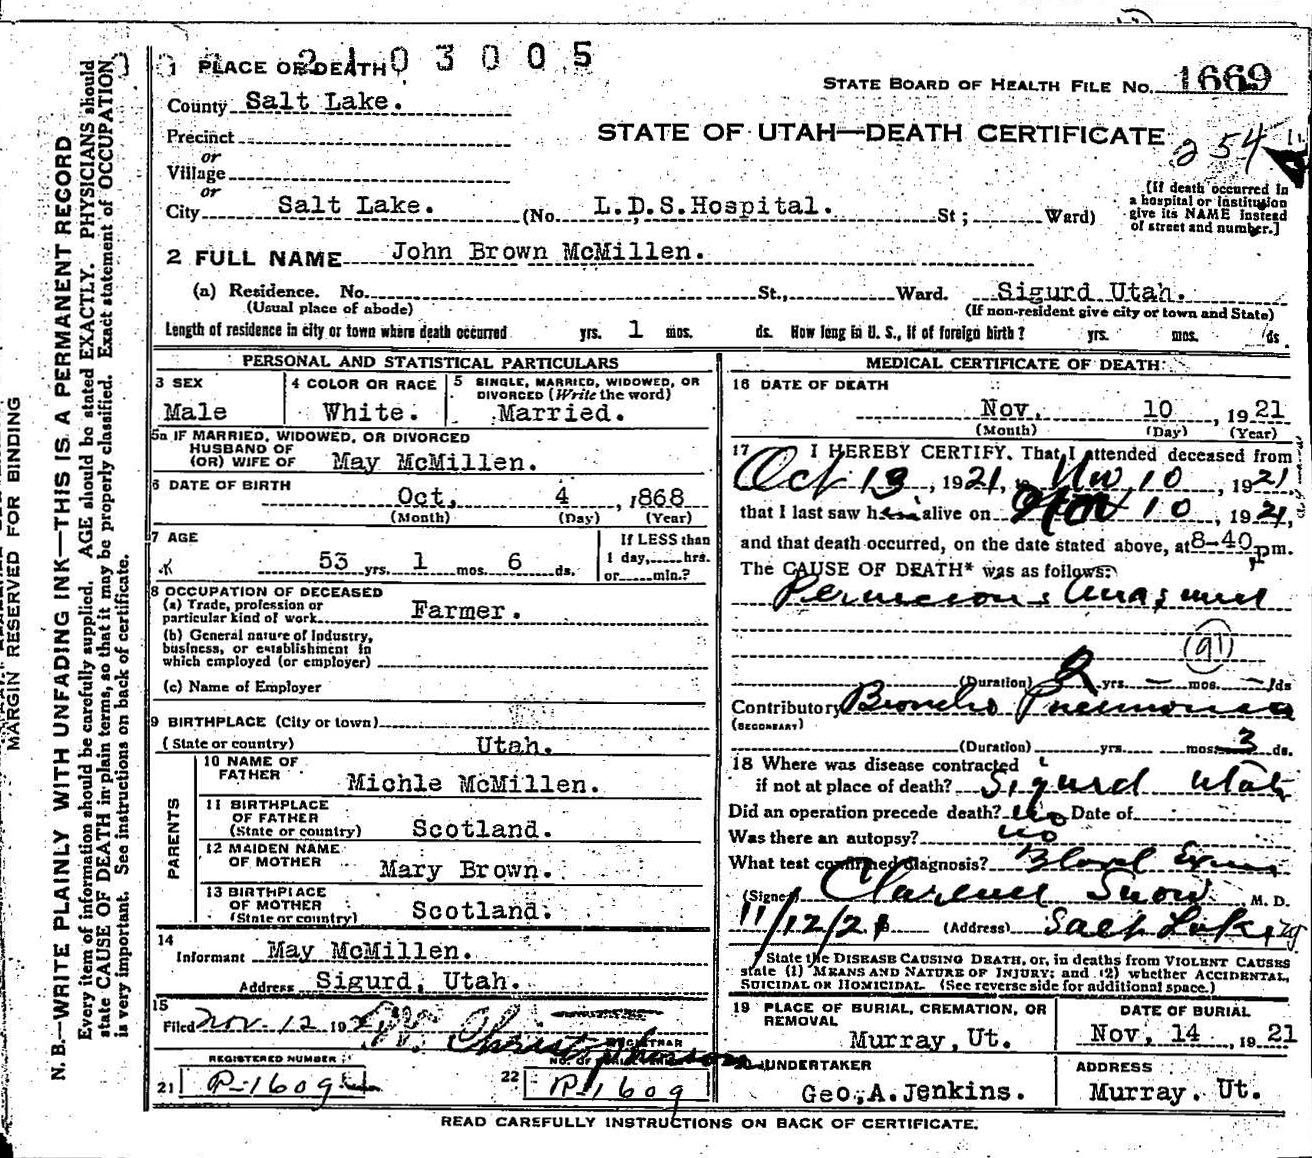 2103005
1 PLACE OF DEATH
STATE BOARD OF HEALTH FILE NO. 1669
County Salt Lake.
STATE OF UTAH—DEATH CERTIFICATE
254
Precinct
or
Village
or
City Salt Lake. (No. L.D.S.Hospital. St ; Ward)
[If death occurred in
a hospital or institution
give its NAME instead
of street and number.]
2 FULL NAME John Brown McMillen.
(a) Residence. No. St., Ward. Sigurd Utah.
(Usual place of abode) (If non-resident give city or town and State)
Length of residence in city or town where death occurred yrs. 1 mos. ds. How long in U. S., if of foreign birth? yrs. mos. ds.
PERSONAL AND STATISTICAL PARTICULARS
3 SEX
Male
4 COLOR OR RACE
White.
5 SINGLE, MARRIED, WIDOWED, OR
DIVORCED (Write the word)
Married.
5a IF MARRIED, WIDOWED, OR DIVORCED
HUSBAND OF
(OR) WIFE OF May McMillen.
6 DATE OF BIRTH
Oct, 4 , 1868
(Month) (Day) (Year)
7 AGE
53 yrs. 1 mos. 6 ds.
If LESS than
1 day, hrs.
or min.?
8 OCCUPATION OF DECEASED
(a) Trade, profession or
particular kind of work Farmer.
(b) General nature of Industry,
business, or establishment in
which employed (or employer)
(c) Name of Employer
9 BIRTHPLACE (City or town)
(State or country) Utah.
PARENTS
10 NAME OF
FATHER Michle McMillen.
11 BIRTHPLACE
OF FATHER
(State or country) Scotland.
12 MAIDEN NAME
OF MOTHER Mary Brown.
13 BIRTHPLACE
OF MOTHER
(State or country) Scotland.
14
Informant May McMillen.
Address Sigurd, Utah.
15
Filed Nov. 12 192
REGISTRAR
REGISTERED NUMBER
21 P-1609
22 P-1609
MEDICAL CERTIFICATE OF DEATH
16 DATE OF DEATH
Nov. 10 , 1921
(Month) (Day) (Year)
17 I HEREBY CERTIFY, That I attended deceased from
Oct 13, 1921, to Nov 10, 1921,
that I last saw him alive on Nov 10, 1921,
and that death occurred, on the date stated above, at 8-40 pm.
The CAUSE OF DEATH* was as follows:
Pernicious Anaemia
(91)
(Duration) 2 yrs — mos. — ds
Contributory Broncho Pneumonia
(SECONDARY)
(Duration) yrs. mos. 3 ds.
18 Where was disease contracted
if not at place of death? Sigurd Utah
Did an operation precede death? no Date of
Was there an autopsy? no
What test confirmed diagnosis? Blood Exam
(Signed) Clarence Snow, M. D.
11/12/21 (Address) Salt Lake
State the DISEASE CAUSING DEATH, or, in deaths from VIOLENT CAUSES
state (1) MEANS AND NATURE OF INJURY; and (2) whether ACCIDENTAL,
SUICIDAL OR HOMICIDAL. (See reverse side for additional space.)
19 PLACE OF BURIAL, CREMATION, OR
REMOVAL
Murray, Ut.
DATE OF BURIAL
Nov, 14 , 1921
UNDERTAKER
Geo.A.Jenkins.
ADDRESS
Murray. Ut.
READ CAREFULLY INSTRUCTIONS ON BACK OF CERTIFICATE.
MARGIN RESERVED FOR BINDING
N. B.—WRITE PLAINLY WITH UNFADING INK—THIS IS A PERMANENT RECORD
Every item of information should be carefully supplied. AGE should be stated EXACTLY. PHYSICIANS should
state CAUSE OF DEATH in plain terms, so that it may be properly classified. Exact statement of OCCUPATION
is very important. See instructions on back of certificate.